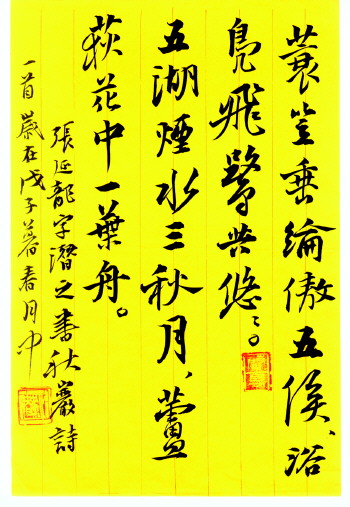 蓑笠垂綸傲五侯、浴
鳧飛鷺共悠々。
五湖煙水三秋月、蘆
荻花中一葉舟。
張延龍字潛之書秋巖詩
一首歲在戊子暮春月中